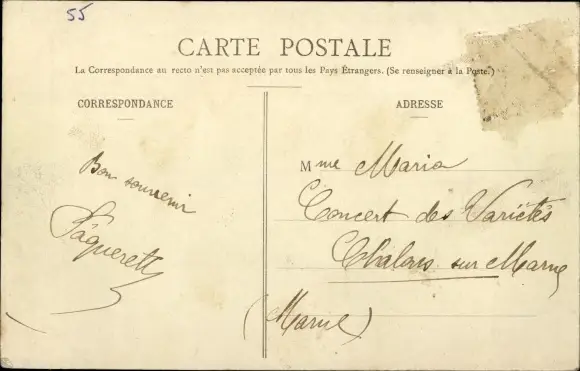 55
CARTE POSTALE
La Correspondance au recto n'est pas acceptée par tous les Pays Étrangers. (Se renseigner à la Poste.)
CORRESPONDANCE
Bon souvenir
Pâquerette
ADRESSE
Mme Maria
Concert des Variétés
Chalons sur Marne
(Marne)